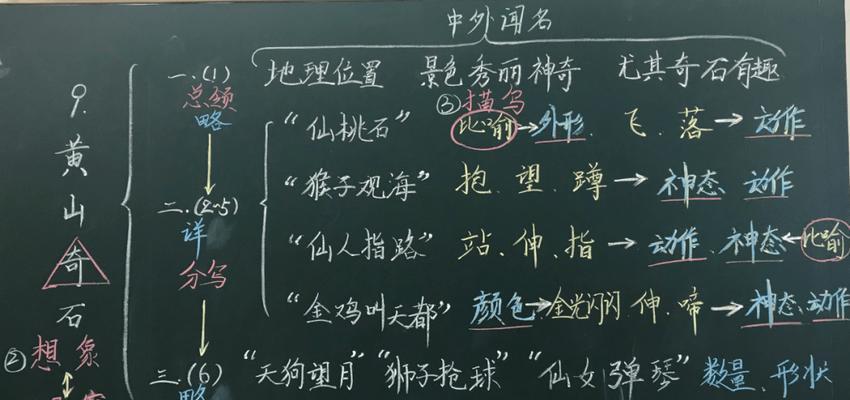 中外闻名
9.黄山奇石
一.(1) 地理位置 景色秀丽神奇 尤其奇石有趣
总领 ③描写
略 "仙桃石" 比喻→外形、飞、落→动作
"猴子观海" 抱、望、蹲→神态 动作
二.(2~5)
详 "仙人指路" 站、伸、指→动作、神态←比喻
分写
"金鸡叫天都" 颜色→金光闪闪、伸、啼→神态、动作
②想象
三.(6) "天狗望月" "狮子抢球" "仙女弹琴" 数量、形状
略